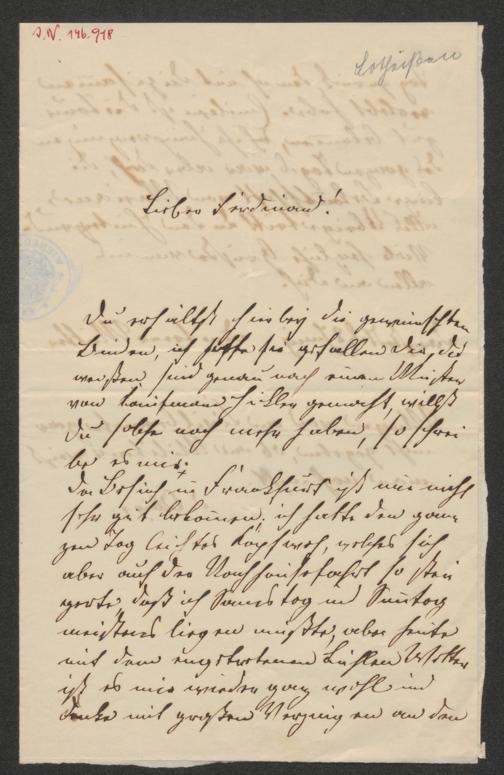 J.N. 146.918
Lotheißen
Lieber Ferdinand!
Du erhältst hierbey die gewünschten
Binden, ich hoffe sie gefallen Dir, die
weißen sind genau nach einem Muster
von Kaufmann Hiller gemacht, willst
Du solche noch mehr haben, so schrei
be es mir.
Der Besuch in Frankfurt ist mir nicht
sehr gut bekommen, ich hatte den gan
zen Tag leichtes Kopfweh, welches sich
aber auf der Nachhausefahrt so stei
gerte, daß ich Samstag und Sonntag
meistens liegen mußte, aber heute
mit dem eingetretenen kühlen Wetter
ist es mir wieder ganz wohl und
denke mit großem Vergnügen an den